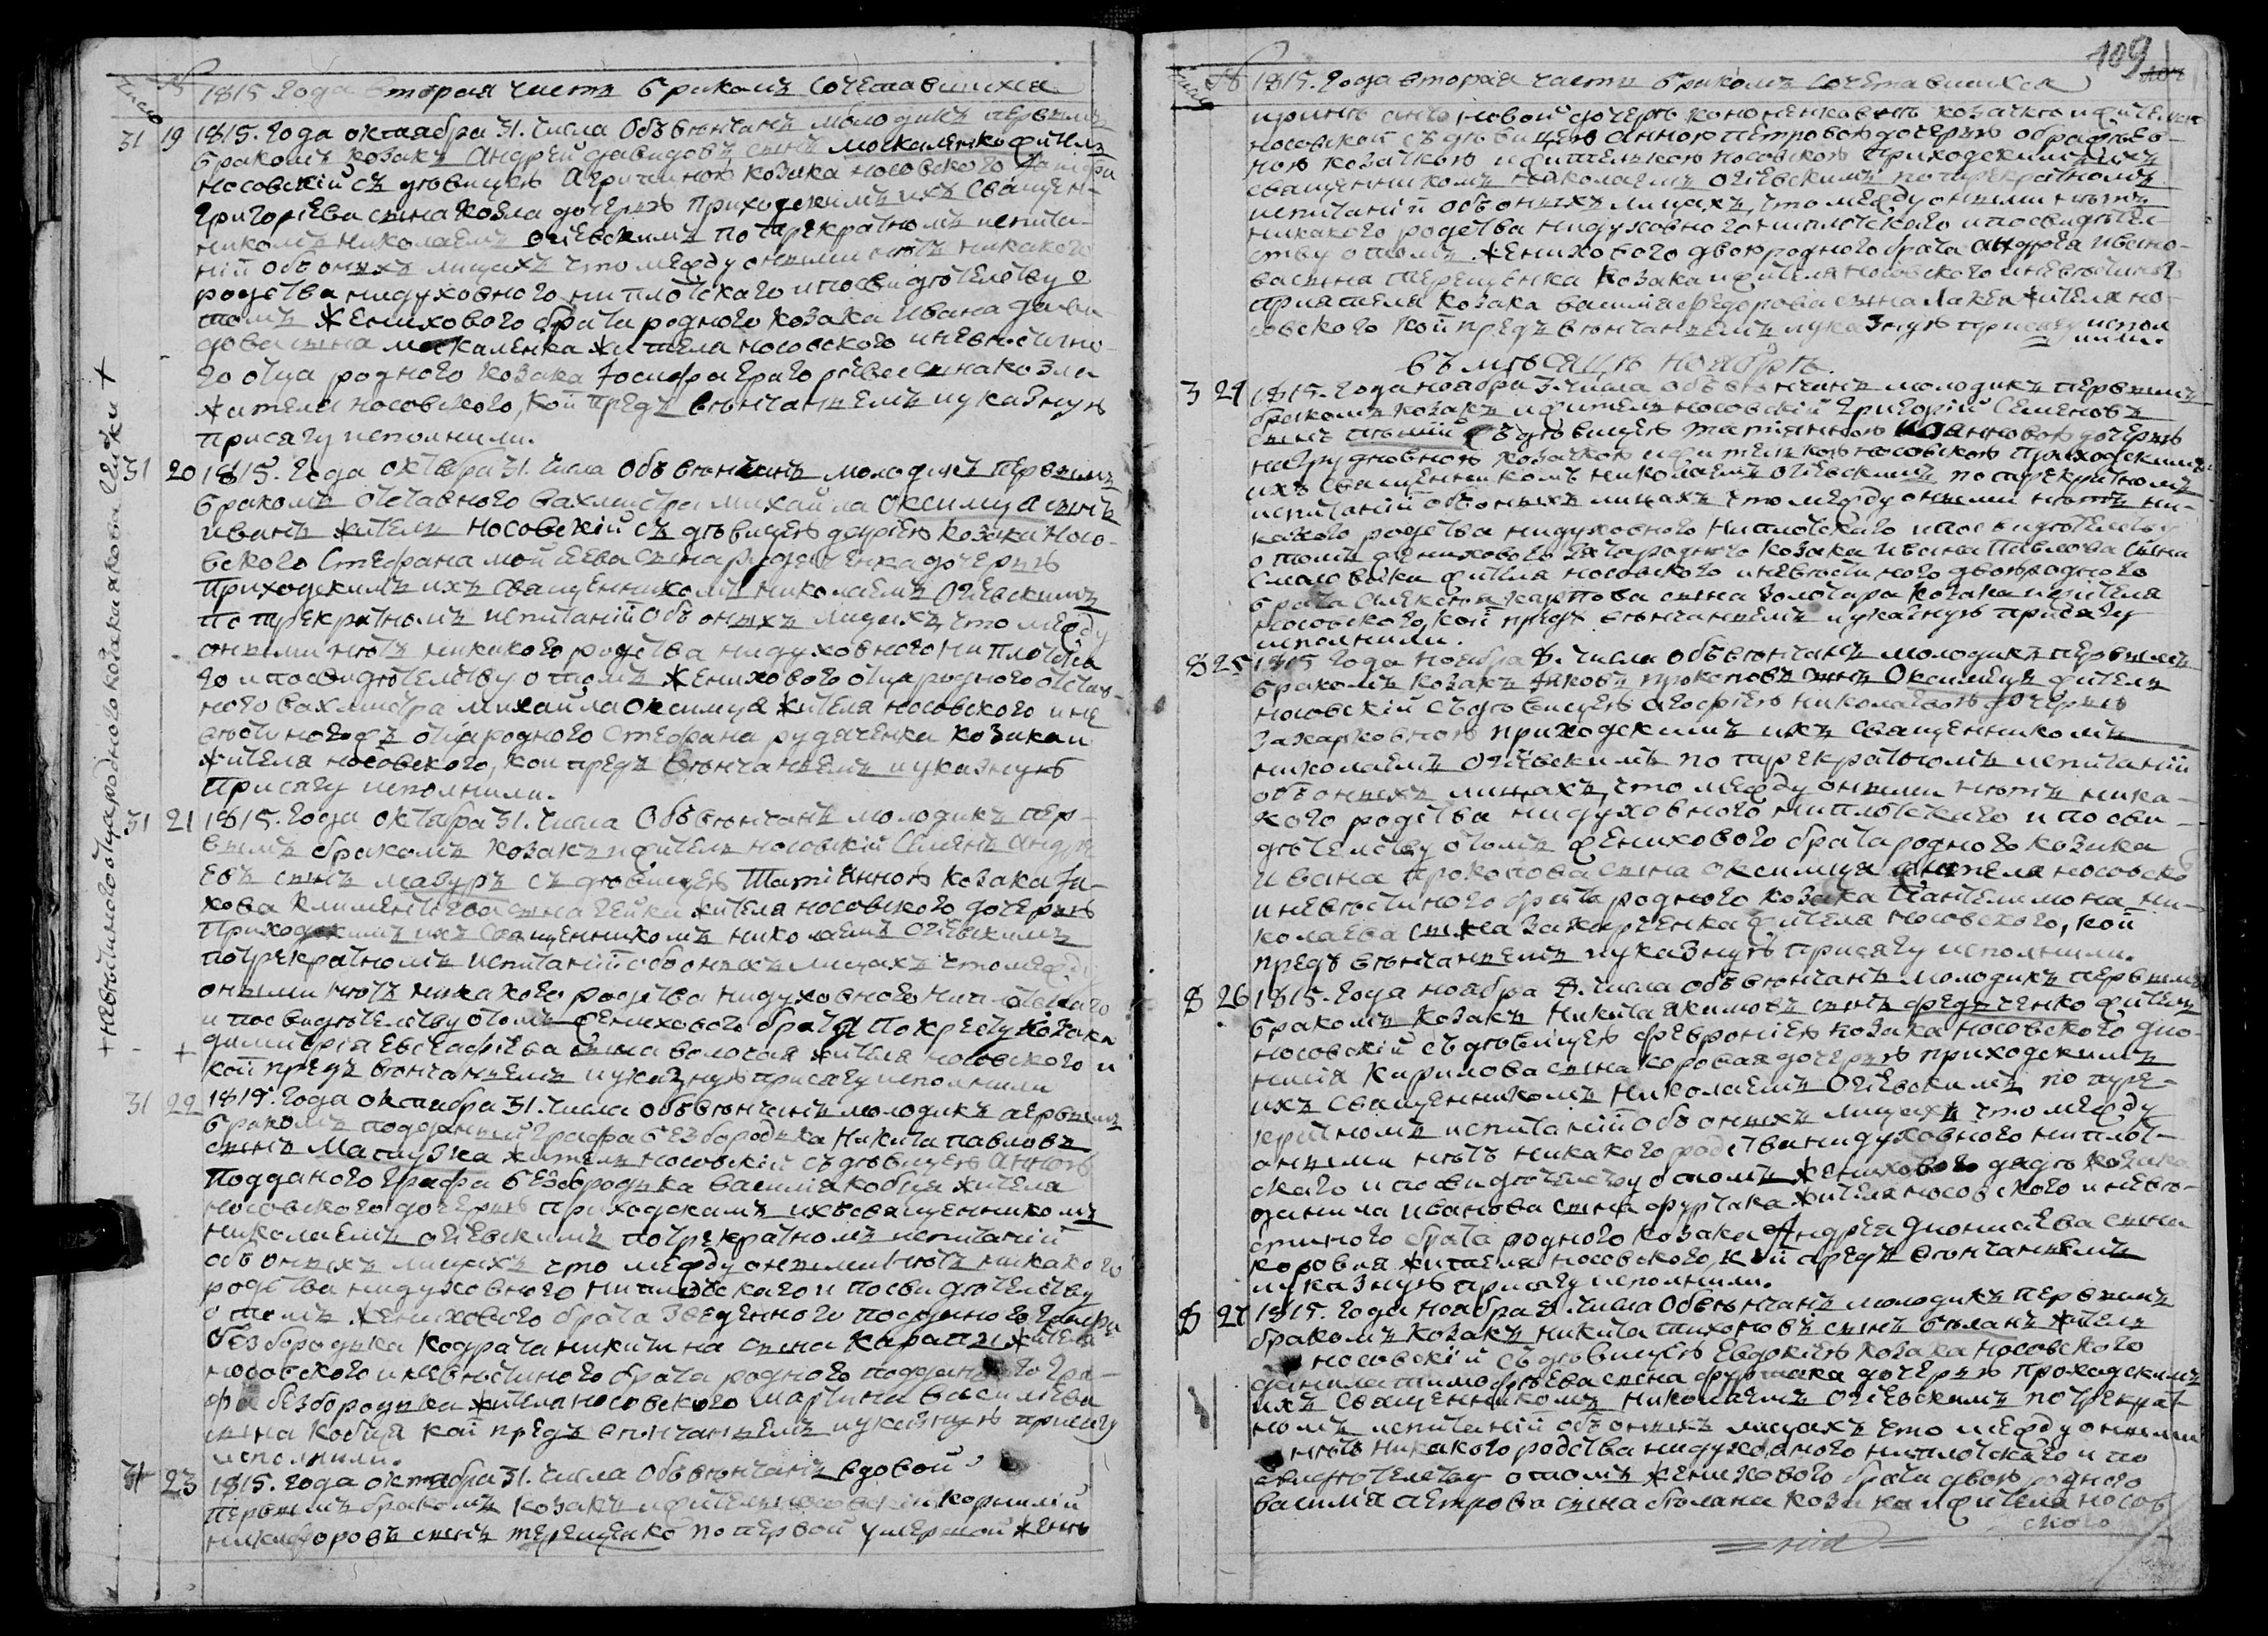 Число № 1815 Года вторая часть браком сочетавшихся
31 19 1815. Года октября 31. числа Объвѣнчанъ молодикъ первымъ
бракомъ козакъ Андрей давидовъ сынъ москаленко житель
носовский съ дѣвицею Агрипиною козака носовского Иосифа
Григориева сына козла дочерью приходскимъ ихъ священ-
никомъ николаемъ огиевскимъ по трекратномъ испита-
нии объ онихъ лицахъ что между оними нѣтъ никакого
родства ни духовного ни плотского и посвидѣтелству о
томъ женихового брата родного козака Ивана дави-
дова сына москаленка жителя носовского и невѣстино-
го отца родного козака Иосифа Григориева сына козла
жителя носовского, кои предъ вѣнчаниемъ и указную
присягу исполнили.
31 20 1815. Года октября 31. числа Объвѣнчанъ молодикъ первымъ
бракомъ отставного вахмистра михайла Оксимца сынъ
Иванъ житель носовский съ дѣвицею дариею козака носо-
вского Стефана мойсеева сына рудаченка дочерью
Приходскимъ ихъ священникомъ николаемъ Огиевскимъ
по трекратномъ испитании Объ онихъ лицахъ, что между
оними нѣтъ никакого родства ни духовного ни плотска-
го и посвидѣтелству о томъ женихового отца родного отстав-
ного вахмистра михайла оксимца жителя носовского и не
вѣстиного отца родного Стефана рудаченка козака и
жителя носовского, кои предъ вѣнчаниемъ и указную
Присягу исполнили.
31 21 1815. Года октября 31. числа Объвѣнчанъ молодикъ пер-
вымъ бракомъ козакъ и житель носовский Семенъ Андре
евъ сынъ мазуръ съ дѣвицею Татианною козака Иа-
кова Климентиева сына гейки жителя носовского дочерью
Приходскимъ ихъ священникомъ николаемъ Огиевскимъ
по трекратномъ испитании объ онихъ лицахъ что между
оними нѣтъ никакого родства ни духовного ни плотского
и посвидѣтелству о томъ женихового брата По кресту козака
+ димитрия Евстафиева сына волохая жителя носовского и
кои предъ вѣнчаниемъ и указную присягу исполнили
+ невѣстиного отца родного козака якова гейки +
31 22 1815. Года октября 31. числа объвѣнчанъ молодикъ первымъ
бракомъ подданный Графа безбородька Никита павловъ
сынъ Мащука житель носовский съ дѣвицею Анною
Подданого Графа безбородька василия кобця жителя
носовского дочерью приходскимъ ихъ священникомъ
николаемъ огиевскимъ по трекратномъ испитании
объ онихъ лицахъ что между оними нѣтъ никакого
родства ни духовного ни плотскаго и посвидѣтелству
о томъ женихового брата зведенного подданого Графа
безбородька Кодрата никитина сына Карапи жителя
носовского и невѣстиного брата родного подданого Гра-
фа безбородька жителя носовского мартина василиева
сына Кобця кои предъ вѣнчаниемъ и указную присягу
исполнили.
31 23 1815. Года октября 31. числа Объвѣнчанъ вдовой
первымъ бракомъ козакъ и житель носовский корнилий
никифоровъ сынъ терещенко по первой умершой женѣ
109
Число № 1815. Года вторая часть браком сочетавшихся
носовской съ дѣвицею Анною петровою дочерью
ною козачкою и жителькою носовскою Приходскимъ ихъ
священникомъ николаемъ огиевскимъ по трекратномъ
испитании объ онихъ лицахъ, что между оними нѣтъ
никакого родства ни духовного ни плотского и посвидѣтел-
ству о томъ женихового двоюродного брата андрея ивано-
ва сына терещенка козака и жителя носовского и невѣстиного
приятеля козака василия федорова сына жителя но-
совского кои предъ вѣнчаниемъ и указную присягу испол
нили.
въ мѣсяцѣ ноябрѣ.
3 24 1815. Года ноября 3. числа объвѣнчанъ молодикъ первымъ
бракомъ козакъ и житель носовский Григорий Семеновъ
сынъ съ дѣвицею татианною дочерью
козачкою и жителькою носовскою Приходскимъ
ихъ священникомъ николаемъ огиевскимъ по трекратномъ
испитании объ онихъ лицахъ что между оними нѣтъ ни-
какого родства ни духовного ни плотского и посвидѣтелству
о томъ женихового козака ивана Павлова сына
жителя носовского и невѣстиного двоюродного
брата Алексея карпова сына золотара козака и жителя
носовского, кои предъ вѣнчаниемъ и указную присягу
исполнили.
8 25 1815 Года ноября 8. числа объвѣнчанъ молодикъ первымъ
бракомъ козакъ Иаковъ прокоповъ сынъ Оксимецъ житель
носовский съ дѣвицею агафиею николаевою дочерью
Захарковною приходскимъ ихъ священникомъ
николаемъ огиевскимъ по трекратномъ испитании
объ онихъ лицахъ, что между оними нѣтъ ника-
кого родства ни духовного ни плотского и посви-
дѣтелству о томъ женихового брата родного козака
Ивана прокопова сына оксимца жителя носовско
и невѣстиного брата родного козака Пантелимона ни-
колаева сына захарченка жителя носовского, кои
предъ вѣнчаниемъ и указную присягу исполнили.
8 26 1815. Года ноября 8. числа объвѣнчанъ молодикъ первымъ
бракомъ козакъ никита якимовъ сынъ федченко житель
носовский съ дѣвицею февронией козака носовского дио-
нисия кирилова сына коровая дочерью приходскимъ
ихъ священникомъ николаемъ Огиевскимъ по тре-
кратномъ испитании объ онихъ лицахъ что между
оними нѣтъ никакого родства ни духовного ни плот-
ского и посвидѣтелству о томъ женихового дяди козака
данила иванова сына фурсака жителя носовского и невѣ-
стиного брата родного козака Андрея дионисиева сына
коровая жителя носовского, кои предъ вѣнчаниемъ
и указную присягу исполнили.
8 27 1815. Года ноября 8. числа объвѣнчанъ молодикъ первымъ
бракомъ козакъ никита тихоновъ сынъ бѣланъ житель
носовский съ дѣвицею Евдокиею козака носовского
данила тимофѣева сына фурсака дочерью приходскимъ
ихъ священникомъ николаемъ Огиевскимъ по трекрат-
номъ испитании объ онихъ лицахъ что между оними
нѣтъ никакого родства ни духовного ни плотского и по
свидѣтелству о томъ женихового брата двоюродного
василия петрова сына бѣлана козака и жителя носов
ского